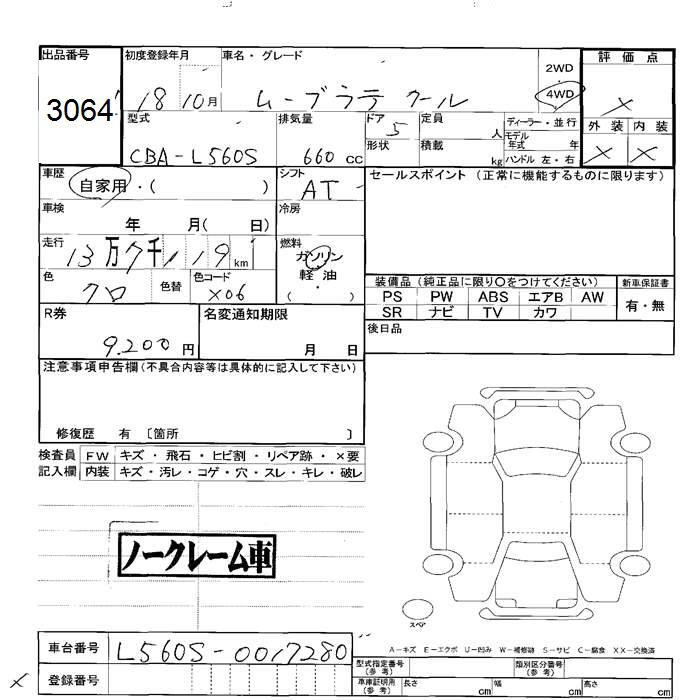 出品番号 初度登録年月 車名・グレード 2WD 評価点
3064 18 10月 ムーブラテ クール 4WD ×
型式 排気量 ドア 定員 ディーラー・並行 外装 内装
CBA-L560S 660cc 5 人 モデル年式 年 × ×
形状 積載 kg ハンドル 左・右
車歴 シフト セールスポイント (正常に機能するものに限ります)
自家用・( ) AT
車検 冷房
年 月( 日)
走行 燃料
13万7千119km ガソリン
軽・油
( )
色 色替 色コード 装備品 (純正品に限り〇をつけてください) 新車保証書
クロ X06 PS PW ABS エアB AW 有・無
SR ナビ TV カワ
R券 名変通知期限 後日品
9.200円 月 日
注意事項申告欄(不具合内容等は具体的に記入して下さい)
修復歴 有 〔箇所 〕
検査員 FW キズ・飛石・ヒビ割・リペア跡・×要
記入欄 内装 キズ・汚レ・コゲ・穴・スレ・キレ・破レ
ノークレーム車
スペア
A-キズ E-エクボ U-凹み W-補修跡 S-サビ C-腐食 XX-交換済
車台番号 L560S-0017280
型式指定番号(参考) 類別区分番号(参考)
× 登録番号
車庫証明用(参考) 長さ cm 幅 cm 高さ cm